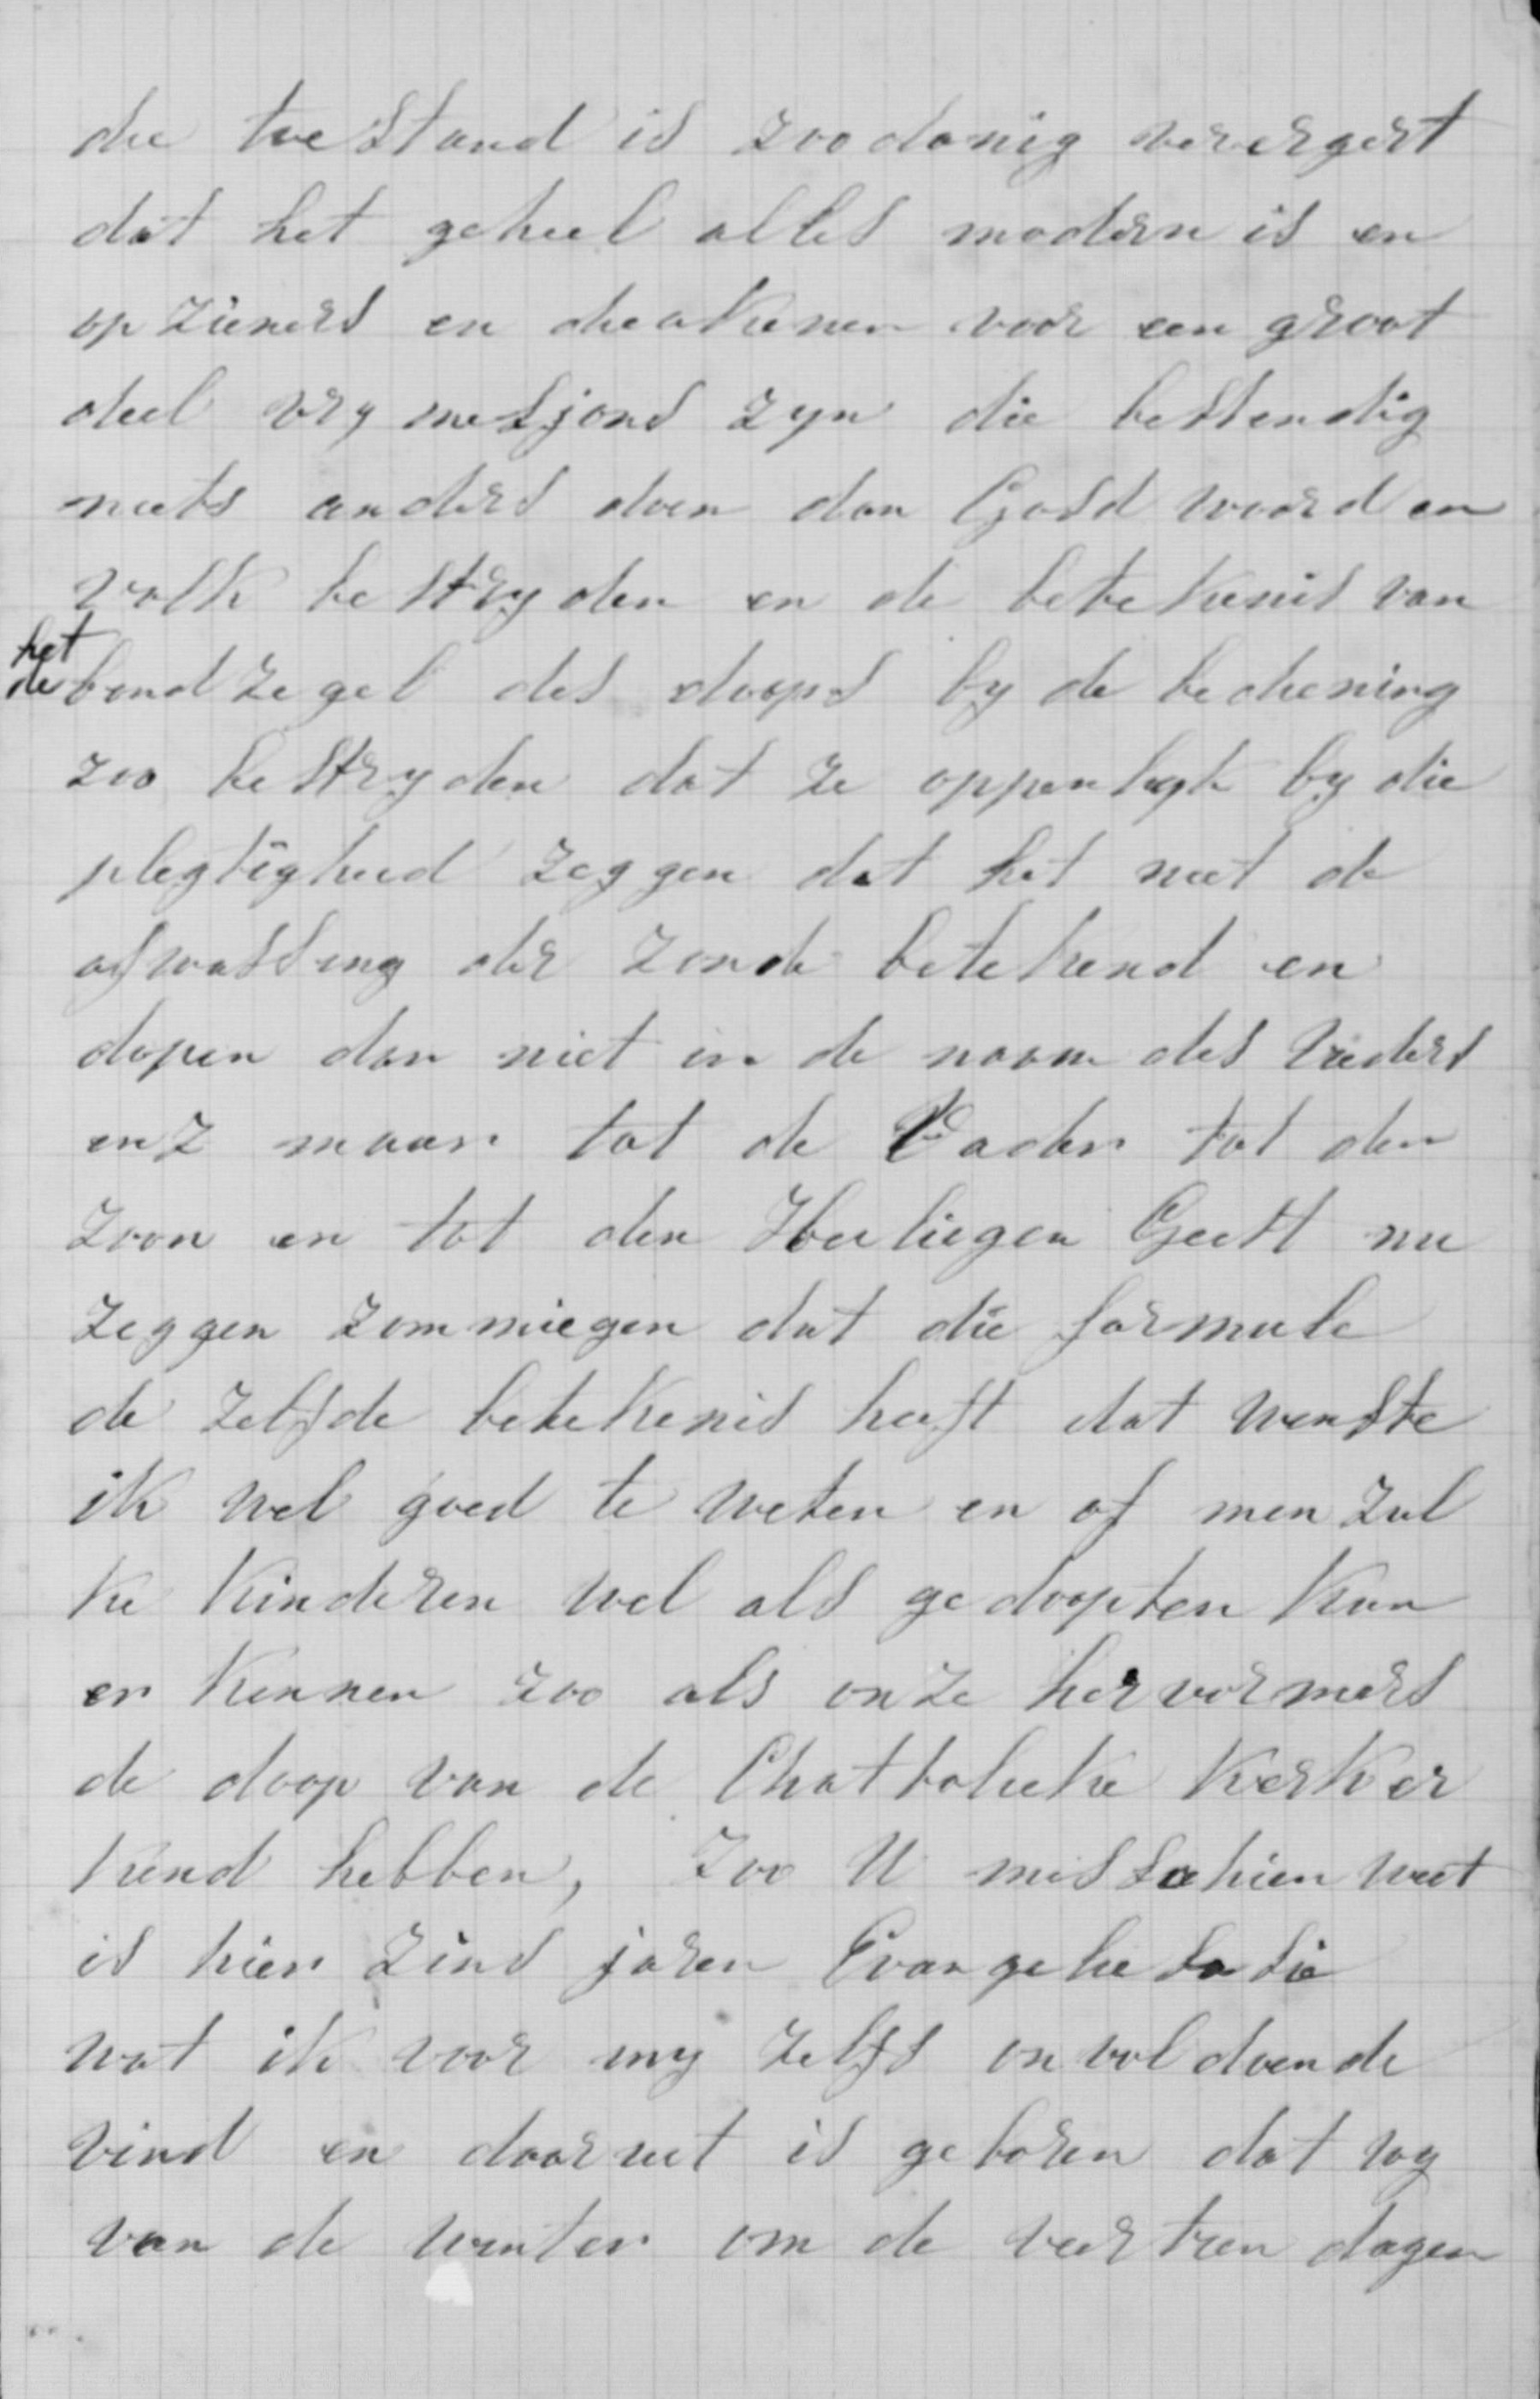 die toestand is zoodanig verergert
dat het geheel alles modern is en
op zieners en dieakenen voor een groot
deel vry mesjons zyn die bestendig
niets anders doen dan Gods woord en
volk be stryden en de betekenis van
het
de bond zegel des doops by de bediening
zoo be stryden dat ze oppenlyk by die
plegtigheid zeggen dat het niet de
afwassing der zonde betekend en
dopen dan niet in de naam des Vaders
enz maar tot de Vader tot den
Zoon en tot den Heiliegen Geest nu
zeggen zommiegen dat die formule
de zelfde betekenis heeft dat wenste
ik wel goed te weten en of men zul
ke kinderen wel als gedoopten kan
er kennen zoo als onze hervormers
de doop van de Chatholieke kerk er
kend hebben, Zoo U misschien weet
is hier zins jaren Evangelie satie
wat ik voor my zelfs onvoldoende
vind en daar uit is geboren dat wy
van de winter om de veertien dagen